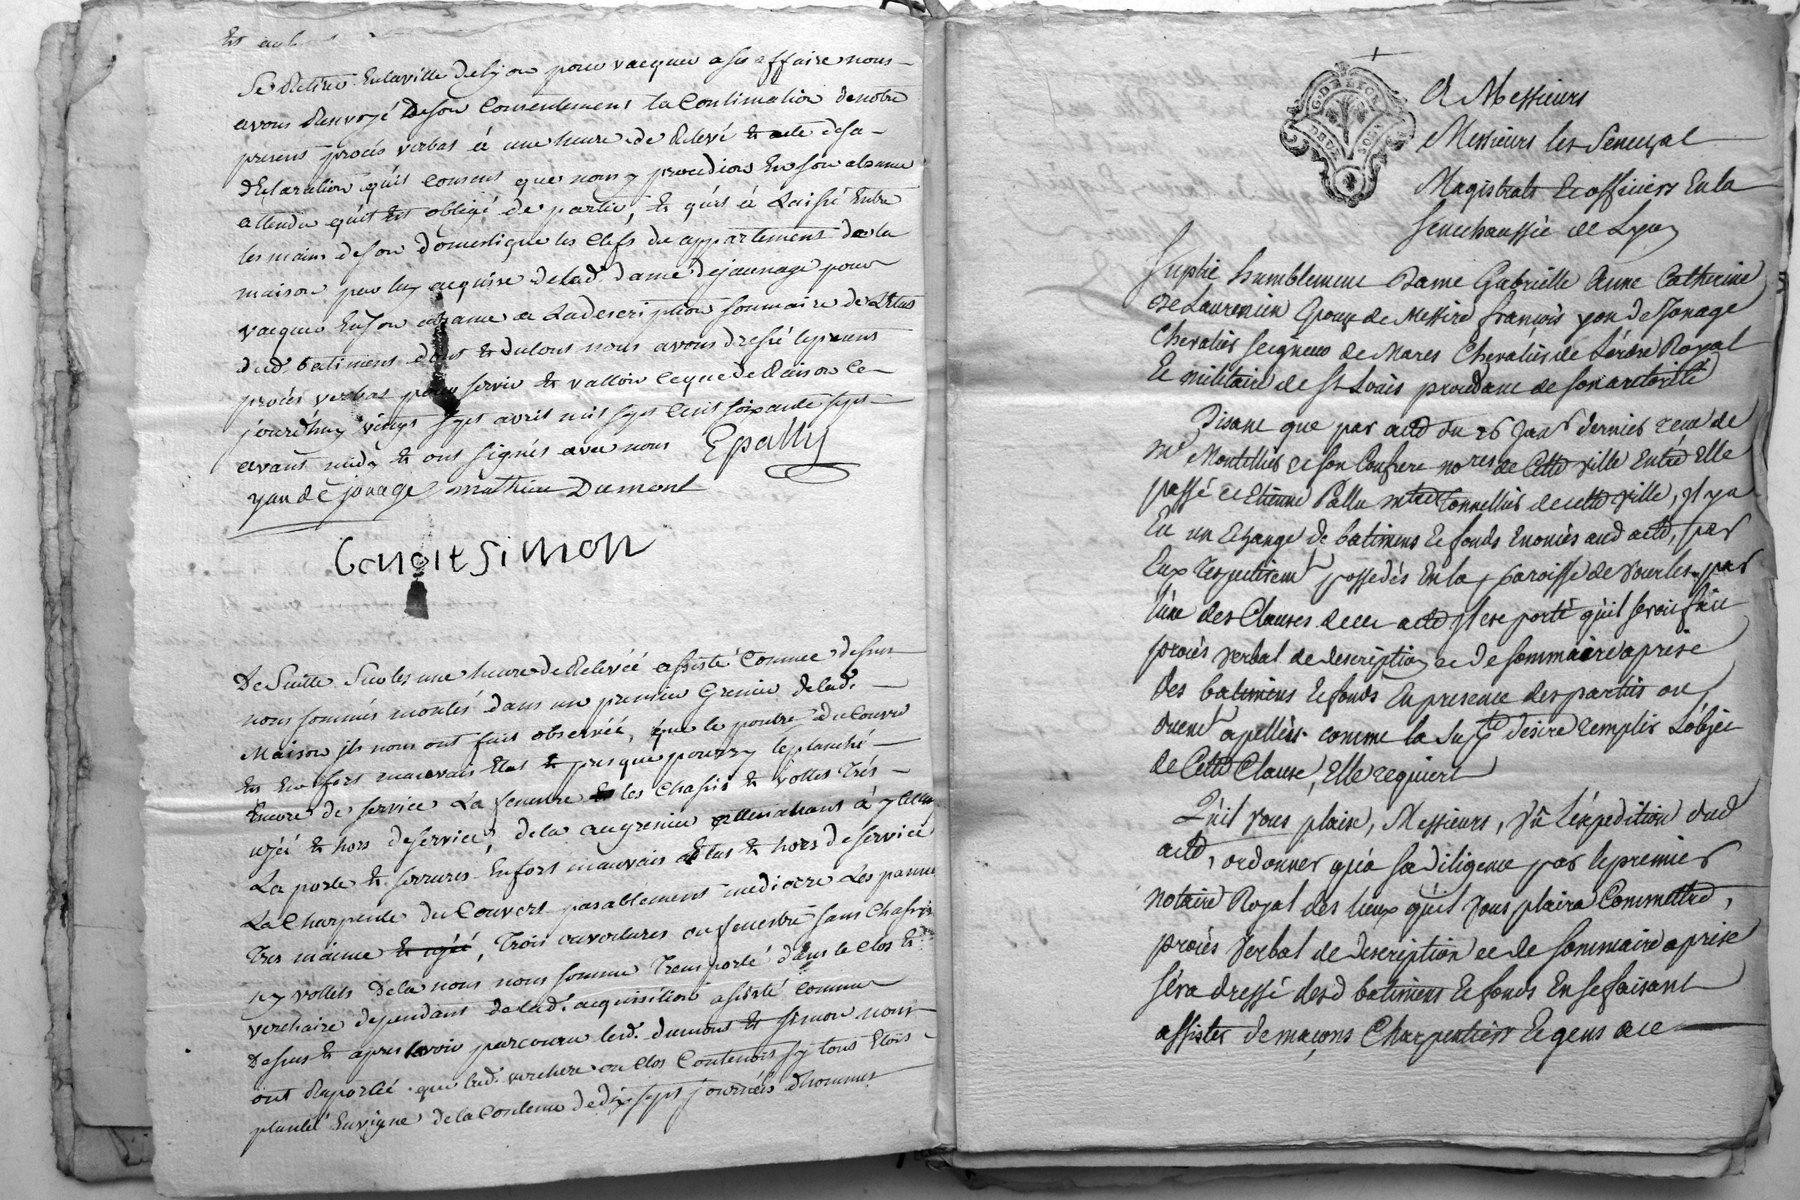 Se Retirer Enlaville delyon pour vacquer a ses affaire nous
avons Renvoyé deson Consentement la Continuation denotre
present procés verbal à une heure de Relevé & acte desa
déclaration qu'il consent que nous y procedions En son absence
attendu qu'il Est obligé de partir, & qu'il à Laissé Entre
les mains deson domestique les Clefs du appartement dela
maison par luy acquise de lad. dame dejaunage pour
vacquer Enson absance a Ladescription sommaire de Letat
dud. batiment dont & dutout nous avons dressé leprésent
procés verbal pour servir & valloir ceque de Raison Ce
jourd'huy vingt sept avril mil sept Cent soixante sept
avant midy & ont signés avec nous Epally
yon de jonage mathieu Dumont
Benoit Simon
De Suitte Surles une heure de Relevéé assisté Comme dessus
nous sommes montés dans un premier Grenier delad.
Maison ils nous ont fait observéé, que le poutre du Couvert
Est En fort mauvais Etat & presque pourry le planché
Encore de service La fenetre & les Chassis & vollets très
uzéé & hors deservice, dela au grenier attenant à y celuy
La porte & serrures En fort mauvais Etat & hors de service
La Charpente du Couvert passablement mediocre Les pannes
tres mainue & uzéé, Trois ouvertures ou fenestre sans Chassis
ny vollets Dela nous nous somme Transporté dans le Clos &
verchaire dependant delad. acquisition assisté comme
Dessus & apres lavoir parcouru lesd. dumont & Simon nous
ont Raporté que lad. verchere ou Clos Contenoit sy tout Etoit
planté En vigne de la Contenue de dix sept journées d'hommes
A Messieurs
Messieurs les Senechal
Magistrats & officiers En la
Senechaussée de Lyon
G. DE LYON
DEUX SOLS
Suplie humblement Dame Gabrielle Anne Catherine
de Laurencin Epouse de Messire françois yon de Jonage
Chevalier Seigneur de Mares Chevalier de L'ordre Royal
& militaire de St Louis procedant de son authorité
Disant que par acte du 26 Janr dernier recu de
me Montellier & son Confrere nores de Cette ville Entre Elle
passé & Etienne Pallu mtre Tonnellier de cette ville, il y a
Eu un Echange de batimens & fonds Enoncés aud acte, par
Eux respectivemt possedés En la paroisse de Vourles par
l'une des Clauses de cet acte il est porté qu'il seroit fait
procès verbal de description & de sommaire aprise
des batimens & fonds En presence des parties ou
duemt apellées. comme la supte desire remplir L'objet
de Cette Clause, Elle requiert
Qu'il vous plaise, Messieurs, vû l'expedition dud
acte, ordonner qu'a sa diligence par le premier
notaire Royal des lieux qu'il vous plaira Commettre,
procès verbal de description & de sommaire aprise
sera dressé desd batimens & fonds En se faisant
assister de maçons Charpentiers & gens a ce